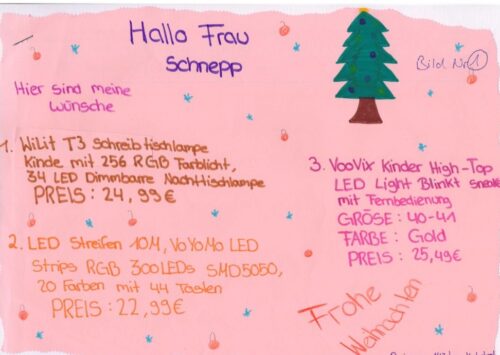 Hallo Frau
Schnepp
Bild Nr. 1
Hier sind meine
Wünsche
1. WiLit T3 Schreibtischlampe
Kinde mit 256 RGB Farblicht,
34 LED Dimmbare Nachttischlampe
PREIS: 24,99€
2. LED Streifen 10M, VoYoMo LED
Strips RGB 300LEDs SMD5050,
20 Farben mit 44 Tasten
PREIS: 22,99€
3. VooVix Kinder High-Top
LED Light Blinkt
mit Fernbedienung
GRÖSE: 40-41
FARBE: Gold
PREIS: 25,49€
Frohe
Weihnachten